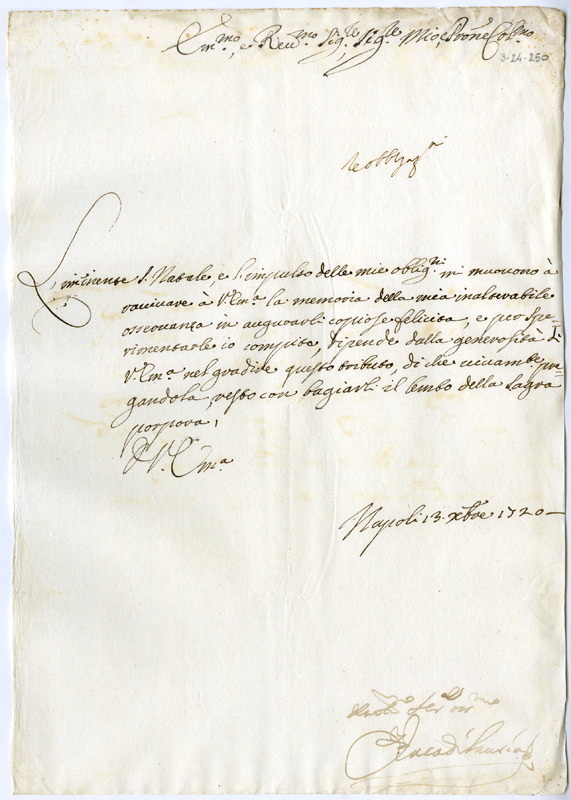 Em.mo, e Reu.mo Sig.re Sig.re Mio, e Prone Col.mo
3-24-250
L'iminense S. Natale, e l'impulso delle mie oblig.ni mi muouono à
rauiuare à V. Em.a la memoria della mia inalterabile
osseruanza in augurarli copiose felicita, e per spe-
rimentarle io compite, dipende dalla generosità di
V. Em.a nel gradire questo tributo, di che uiuam.te pre-
gandola, resto con bagiarli il lembo della Sagra
porpora,
D V. Em.a
Napoli 13. Xbre 1720